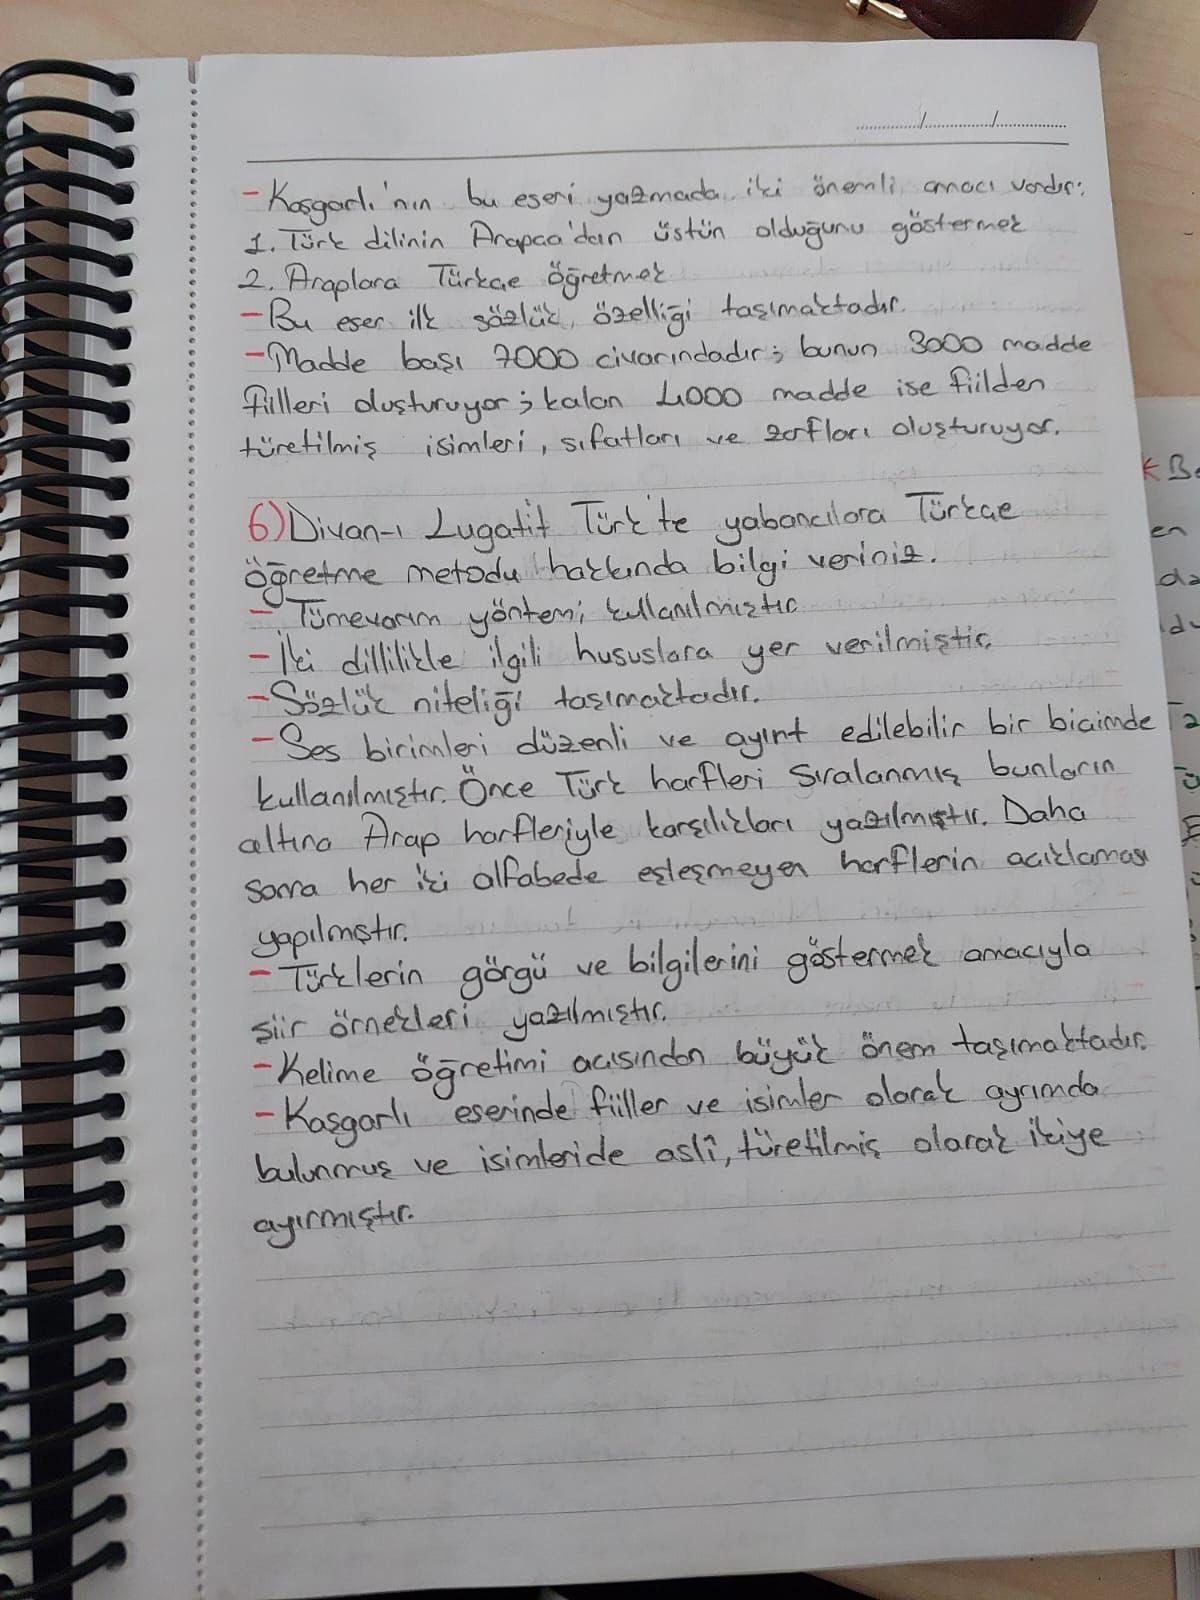 ....../....../......
- Kaşgarlı'nın bu eseri yazmada iki önemli amacı vardır:
1. Türk dilinin Arapça'dan üstün olduğunu göstermek
2. Araplara Türkçe öğretmek
- Bu eser ilk sözlük özelliği taşımaktadır.
- Madde başı 7000 civarındadır; bunun 3000 madde
fiilleri oluşturuyor; kalan 4000 madde ise fiilden
türetilmiş isimleri, sıfatları ve zarfları oluşturuyor.
6) Divan-ı Lugatit Türk'te yabancılara Türkçe
öğretme metodu hakkında bilgi veriniz.
- Tümevarım yöntemi kullanılmıştır.
- İki dillilikle ilgili hususlara yer verilmiştir.
- Sözlük niteliği taşımaktadır.
- Ses birimleri düzenli ve ayırt edilebilir bir biçimde
kullanılmıştır. Önce Türk harfleri sıralanmış bunların
altına Arap harfleriyle karşılıkları yazılmıştır. Daha
sonra her iki alfabede eşleşmeyen harflerin açıklaması
yapılmıştır.
- Türklerin görgü ve bilgilerini göstermek amacıyla
şiir örnekleri yazılmıştır.
- Kelime öğretimi açısından büyük önem taşımaktadır.
- Kaşgarlı eserinde fiiller ve isimler olarak ayrımda
bulunmuş ve isimleride aslî, türetilmiş olarak ikiye
ayırmıştır.